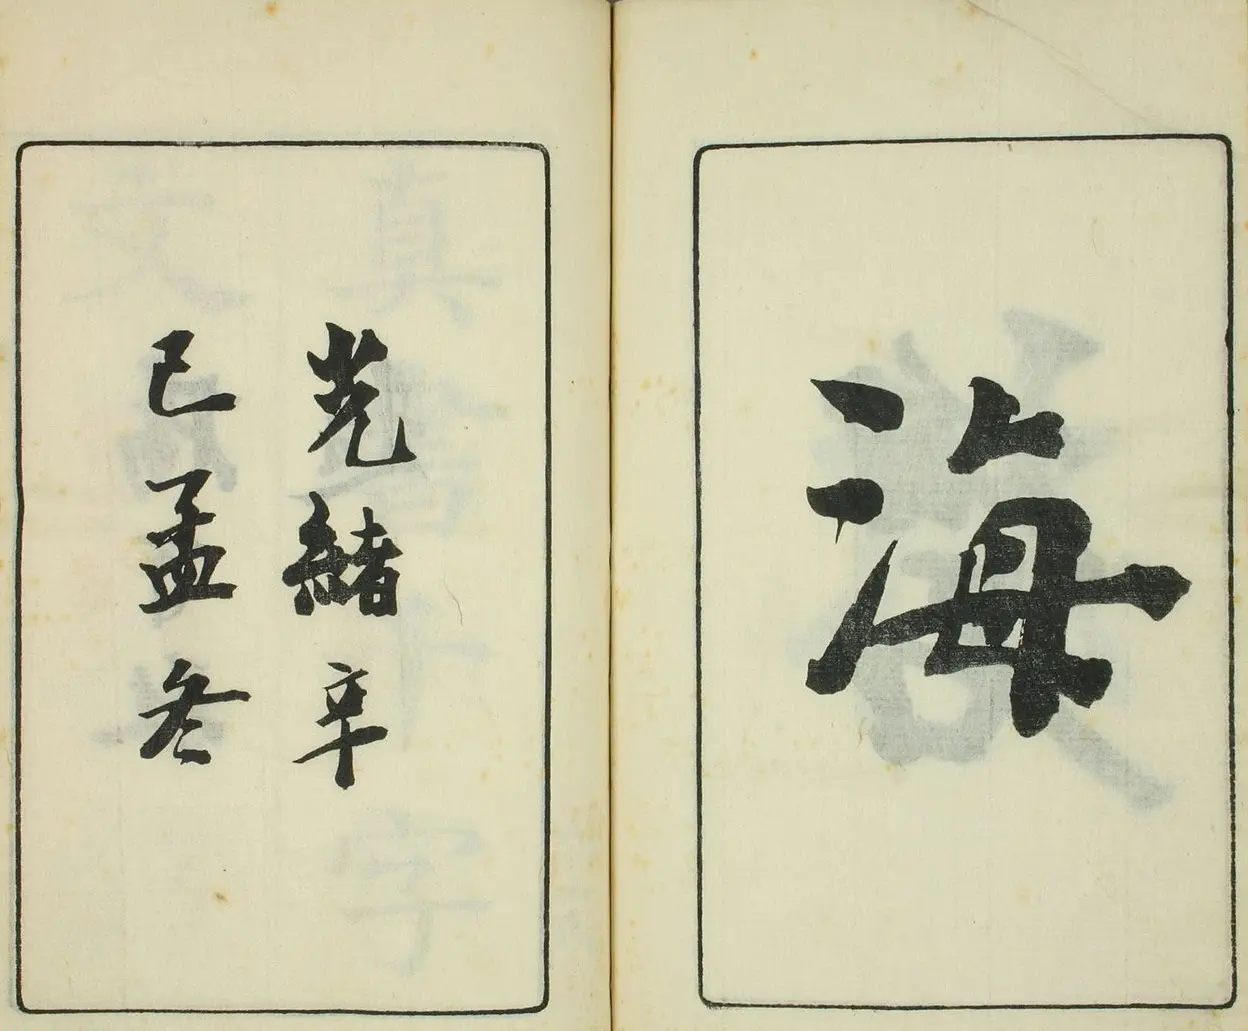 海
光緒辛
巳孟冬